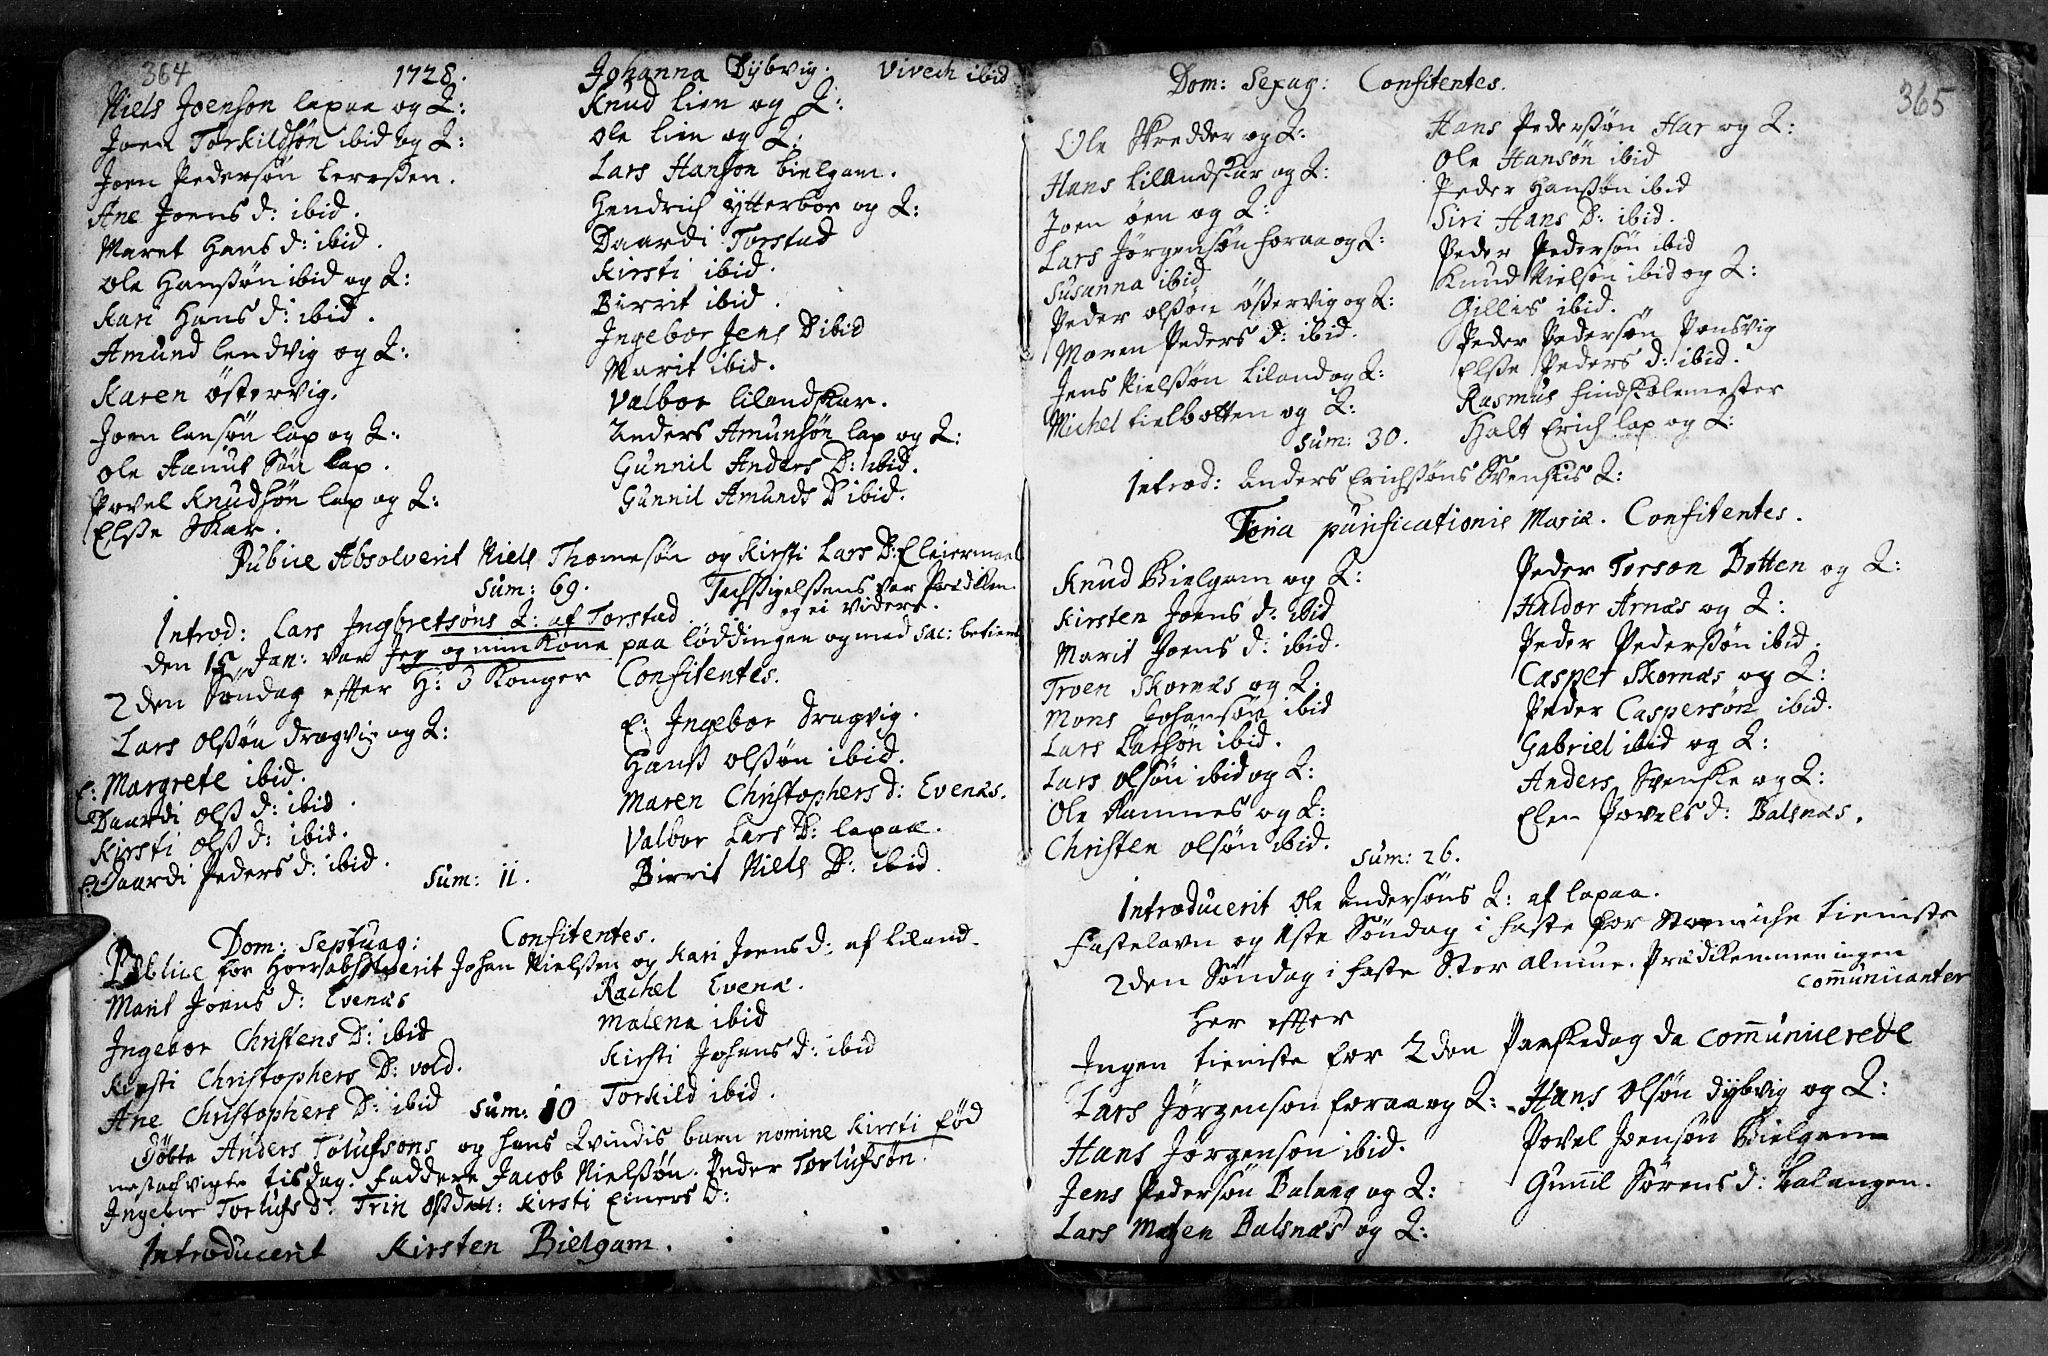 364
1728.
Niels Joensøn lapaa og Q:
Joen Torkildsøn ibid og Q:
Joen Pedersøn
Ane Joens d: ibid.
Maret Hans d: ibid.
Ole Hanssøn ibid og Q:
Kari Hans d: ibid.
Amund Lendvig og Q:
Karen Østervig.
Joen lap og Q:
Ole lap.
Povel Knudsøn lap og Q:
Elsse Skar.
Johanna Dybvig. Vivech ibid
Knud Lien og Q:
Ole Lien og Q:
Lars Hansøn Bielgam.
Hendrich Ytterboe og Q:
Daardi Torstad
Kirsti ibid.
Birrit ibid.
Ingebor Jens D ibid
Marit ibid.
Valbor Lilandskar.
Anders Amunsøn lap og Q:
Gunnil Anders D: ibid.
Gunnil Amunds D ibid.
Publice Absolverit Niels Thomesøn og Kirsti Lars D:
Sum: 69.
og ei videre.
Introd: Lars Ingbretsøns Q: af Torstad
den 15 Jan: var Jeg og min Kone paa Løddingen og med Sac:
2den Søndag efter H: 3 Konger Confitentes.
Lars Olssøn Dragvig og Q:
E: Margrete ibid.
Daardi Olss d: ibid.
Kirsti Olss d: ibid.
E: Daardi Peders d: ibid.
Sum: 11.
E: Ingebor Dragvig.
Hanss Olssøn ibid.
Maren Christophers d: Evenæs.
Valbor Lars D: lapaa.
Birrit Niels D: ibid.
Dom: Septuag: Confitentes.
Publice for Johan Nielssen og Kari Joens d: af Liland.
Marit Joens d: Evenæs
Ingebor Christens D: ibid
Kirsti Christophers D: vold.
Ane Christophers D: ibid
Sum: 10
Rachel Evenæ.
Malena ibid
Kirsti Johans d: ibid
Torkild ibid.
Døbte Anders Tolufsøns og hans Qvindis barn nomine Kirsti fød
tisdag. Faddere Jacob Nielssøn. Peder Torlufsøn.
Ingebor Torlufs d: Trin Kirsti Einers d:
Introducerit Kirsten Bielgam.
365
Dom: Sexag: Confitentes.
Ole Skredder og Q:
Hans Lilandskar og Q:
Joen Øen og Q:
Lars Jørgensøn Foraa og Q:
Susanna ibid
Peder Olssøn Østervig og Q:
Maren Peders d: ibid.
Jens Nielssøn Liland og Q:
Michel Fielbotten og Q:
Sum: 30.
Hans Pederssøn Har og Q:
Ole Hansøn ibid
Peder Hanssøn ibid
Siri Hans D: ibid.
Peder Pedersøn ibid
Knud Nielsøn ibid og Q:
Gillis ibid.
Peder Pedersøn Ponsvig
Elsse Peders d: ibid.
Rasmus Find Skolemester
Halt Erich lap og Q:
Introd: Anders Erichssøns Svenskis Q:
Feria purificationis Mariæ. Confitentes.
Knud Bielgam og Q:
Kirsten Joens d: ibid
Marit Joens d: ibid.
Troen Skornæs og Q:
Mons Johansøn ibid
Lars Larsøn ibid.
Lars Olsøn ibid og Q:
Ole Ramnes og Q:
Christen Olsøn ibid.
Sum: 26.
Peder Torson Botten og Q:
Haldor Arnæs og Q:
Peder Pederssøn ibid.
Casper Skornæs og Q:
Peder Caspersøn ibid.
Gabriel ibid og Q:
Anders Svenske og Q:
Elen Povels d: Balsnæs.
Introducerit Ole Andersøns Q: af lapaa.
Fastelavn og 1ste Søndag i Faste for tieniste
2den Søndag i Faste Stor almue. Prædiken men ingen
communicanter
Her efter
Ingen tieniste før 2den Paaskedag da communicerede
Lars Jørgensøn Foraa og Q:
Hans Jørgensøn ibid.
Jens Pedersøn Balang og Q:
Lars Balsnæs og Q:
Hans Olsøn Dybvig og Q:
Povel Joensøn Bielgam
Gunnil Sørens d: Balangen.